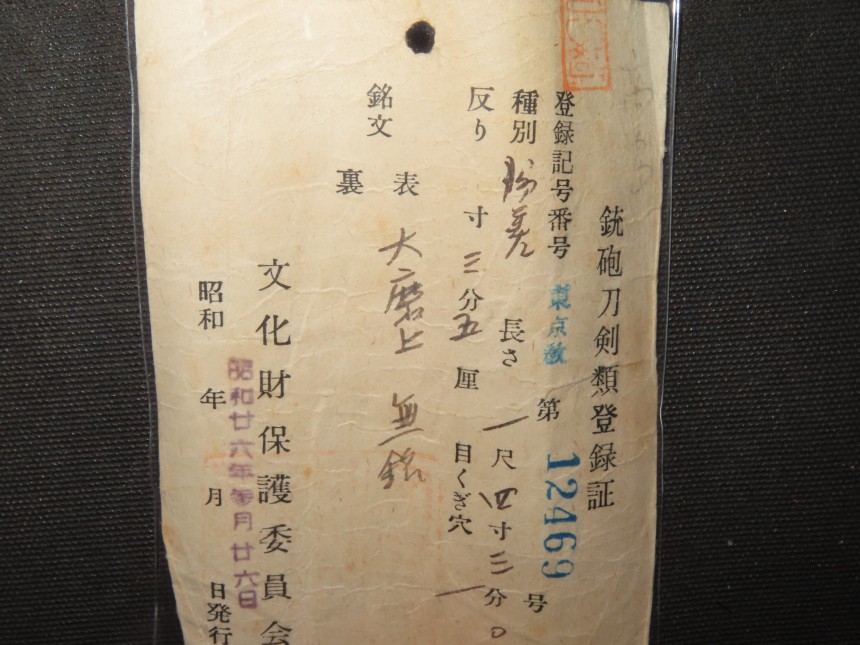 銃砲刀剣類登録証
登録記号番号 東京教 第 12469 号
種別 脇差 長さ 一尺四寸三分〇
反り 寸三分五厘 目くぎ穴 一
銘文 表 大磨上 無銘
裏
文化財保護委員会
昭和 年 月 日発行
昭和廿六年 月廿六日